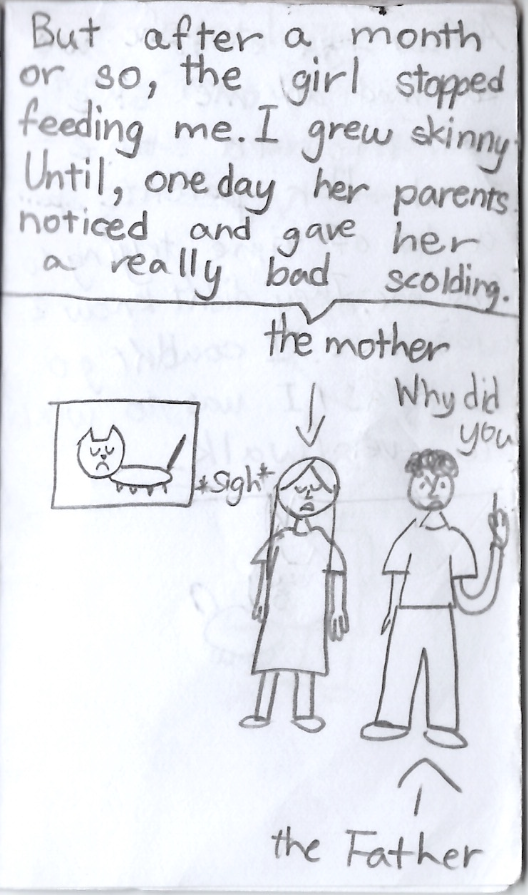 But after a month
or so, the girl stopped
feeding me. I grew skinny
Until, one day her parents
noticed and gave her
a really bad scolding.
the mother
Why did
you
*sigh*
the Father